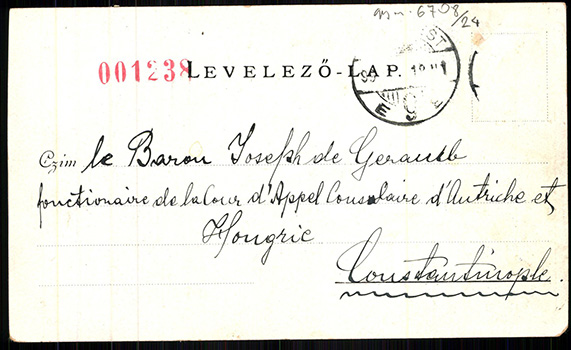 6708/24
001238
LEVELEZŐ-LAP.
Czim le Baron Joseph de
fonctionaire de la Cour d'Appel Consulaire d'Autriche et
Hongrie
Constantinople.